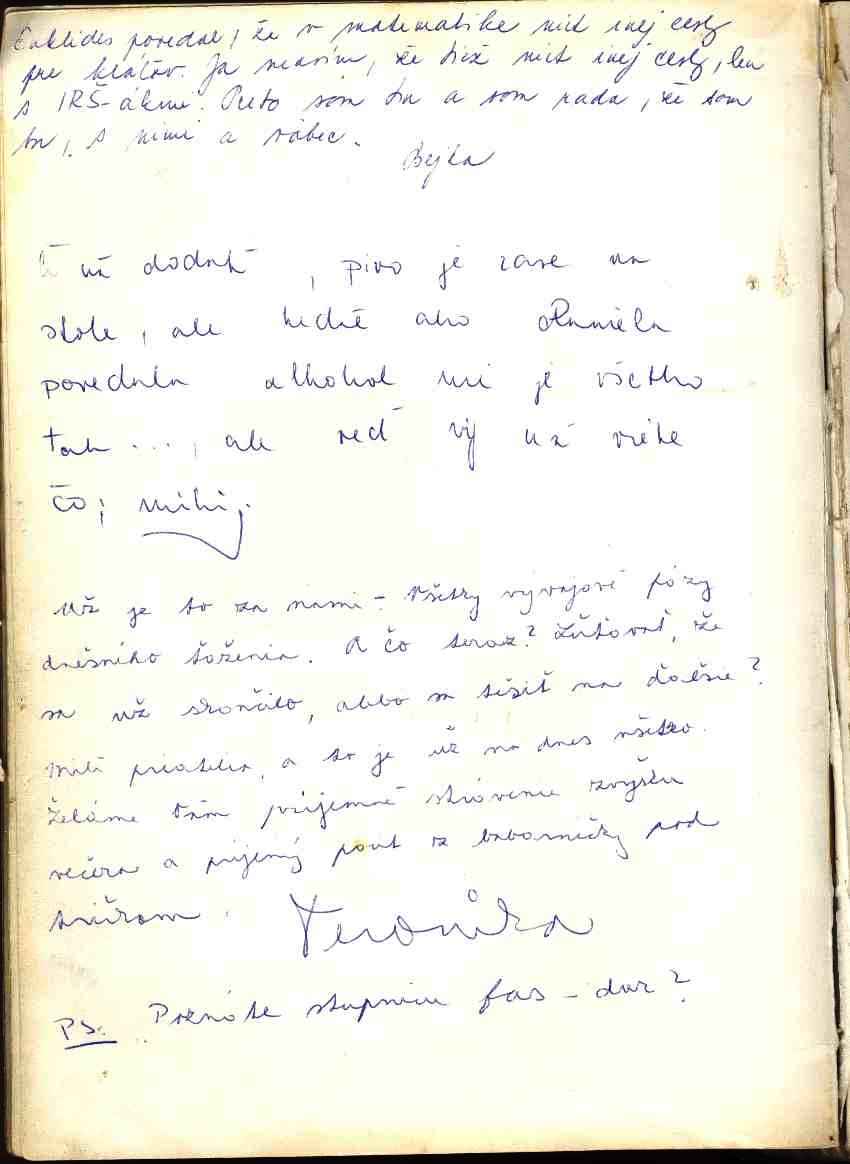 Euklides povedal, že v matematike niet inej cesty
pre kráľov. Ja neviem, že tiež niet inej cesty, len
s IRŠ-ákmi. Preto som tu a som rada, že som
tu, s nimi a vôbec.
Bejka
už dodať, pivo je zase na
stole, ale keďže ako
povedala alkohol mi je všetko
tak ..., ale veď vy už viete
čo; miki.
Už je to za nami - všetky vývojové fázy
dnešného taženia. A čo teraz? Ľutovať, že
sa už skončilo, alebo sa tešiť na ďalšie?
Milí priatelia, a to je už na dnes všetko.
Želáme Vám príjemné strávenie zvyšku
večera a príjemný pouť z taborničky pod
Veronika
PS. Poznáte stupnicu fas - dur?